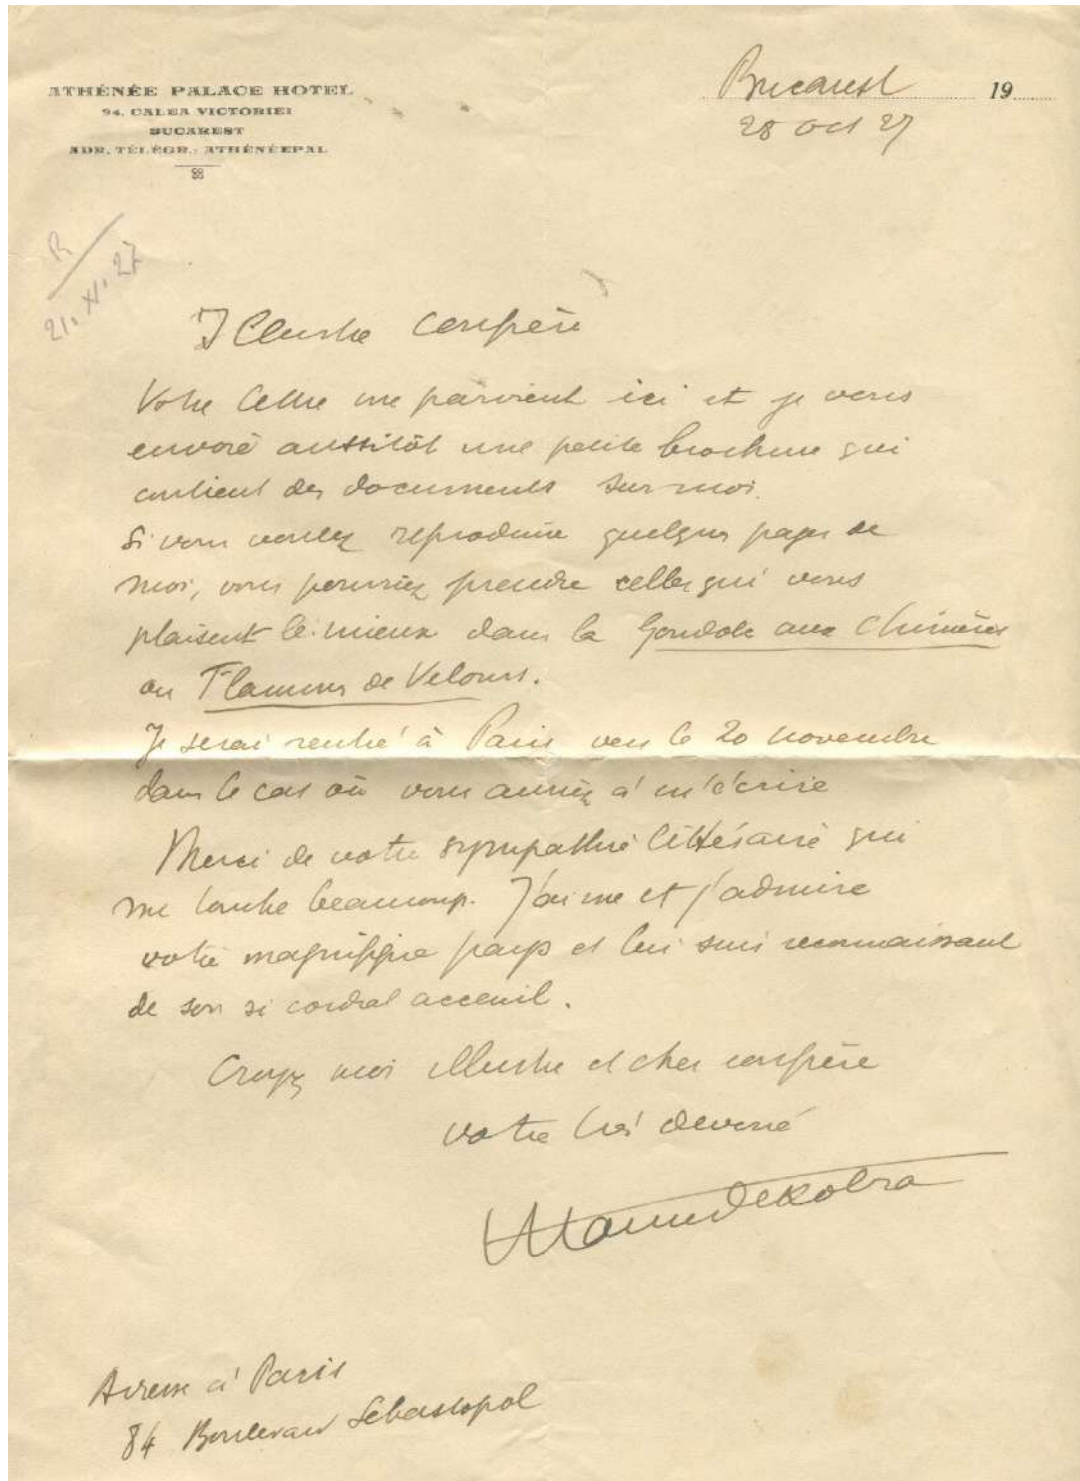 ATHÉNÉE PALACE HOTEL
94, CALEA VICTORIEI
BUCAREST
ADR. TÉLÉGR.: ATHÉNÉEPAL
Bucarest 19
28 Oct 27
R
21. XI. 27
Illustre Confrère
Votre lettre me parvient ici et je vous
envoie aussitôt une petite brochure qui
contient des documents sur moi.
Si vous voulez reproduire quelques pages de
moi, vous pourriez prendre celles qui vous
plaisent le mieux dans la Gondole aux Chimères
ou Flammes de Velours.
Je serai rentré à Paris vers le 20 novembre
dans le cas où vous auriez à m'écrire
Merci de votre sympathie littéraire qui
me touche beaucoup. J'aime et j'admire
votre magnifique pays et lui suis reconnaissant
de son si cordial acceuil.
Croyez moi illustre et cher confrère
votre très dévoué
Maurice Dekobra
Adresse à Paris
84 Boulevard Sebastopol